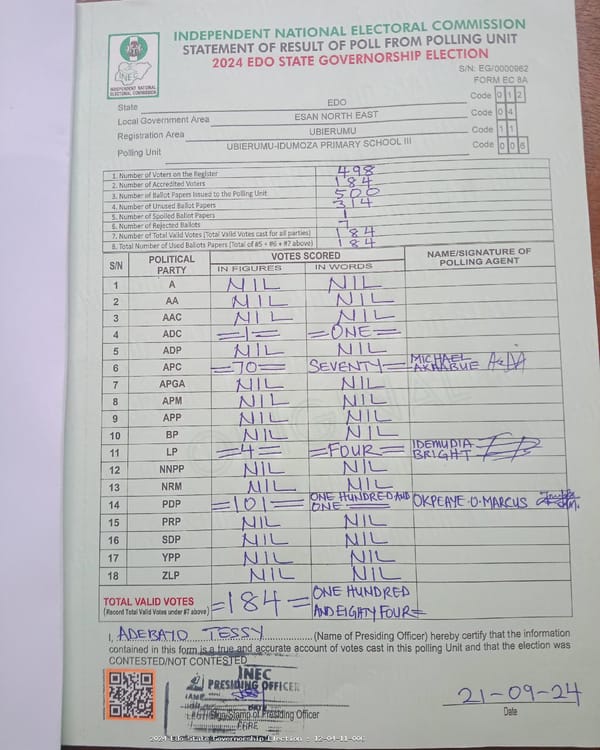 INDEPENDENT NATIONAL ELECTORAL COMMISSION
STATEMENT OF RESULT OF POLL FROM POLLING UNIT
2024 EDO STATE GOVERNORSHIP ELECTION
INEC
INDEPENDENT NATIONAL ELECTORAL COMMISSION
S/N: EG/0000962
FORM EC 8A
State EDO Code 0 1 2
Local Government Area ESAN NORTH EAST Code 0 4
Registration Area UBIERUMU Code 1 1
Polling Unit UBIERUMU-IDUMOZA PRIMARY SCHOOL III Code 0 0 6
1. Number of Voters on the Register 498
2. Number of Accredited Voters 184
3. Number of Ballot Papers Issued to the Polling Unit 500
4. Number of Unused Ballot Papers 314
5. Number of Spoiled Ballot Papers 1
6. Number of Rejected Ballots
7. Number of Total Valid Votes (Total Valid Votes cast for all parties) 184
8. Total Number of Used Ballots Papers (Total of #5 + #6 + #7 above) 184
S/N POLITICAL PARTY VOTES SCORED NAME/SIGNATURE OF POLLING AGENT
IN FIGURES IN WORDS
1 A NIL NIL
2 AA NIL NIL
3 AAC NIL NIL
4 ADC =1= =ONE=
5 ADP NIL NIL
6 APC =70= SEVENTY= MICHAEL AKHABUE
7 APGA NIL NIL
8 APM NIL NIL
9 APP NIL NIL
10 BP NIL NIL
11 LP =4= =FOUR= IDEMUDIA BRIGHT
12 NNPP NIL NIL
13 NRM NIL NIL
14 PDP =101= ONE HUNDRED AND ONE= OKPEAYE.O.MARCUS
15 PRP NIL NIL
16 SDP NIL NIL
17 YPP NIL NIL
18 ZLP NIL NIL
TOTAL VALID VOTES =184= ONE HUNDRED
(Record Total Valid Votes under #7 above) AND EIGHTY FOUR=
I, ADEBAYO TESSY (Name of Presiding Officer) hereby certify that the information
contained in this form is a true and accurate account of votes cast in this polling Unit and that the election was
CONTESTED/NOT CONTESTED
INEC
PRESIDING OFFICER
Sign/Stamp of Presiding Officer
21-09-24
Date
2024 EDO State Governorship Election - 12-04-11-006